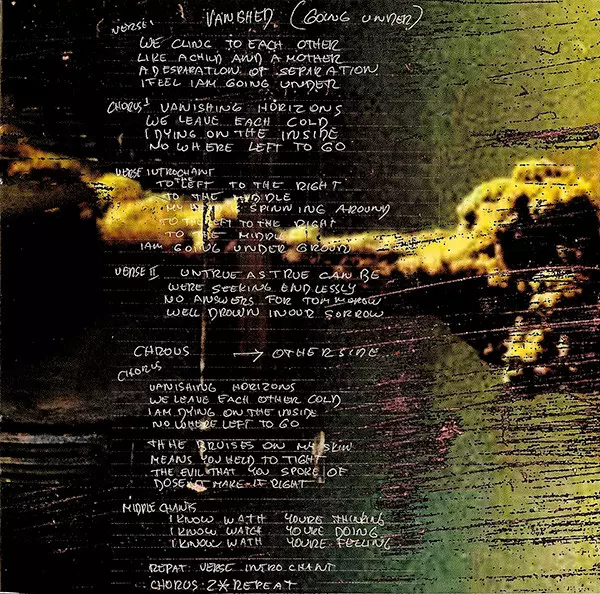 VANISHED (GOING UNDER)
VERSE I
WE CLING TO EACH OTHER
LIKE A CHILD AND A MOTHER
A DESPARATION OF SEPARATION
I FEEL I AM GOING UNDER
CHORUS I VANISHING HORIZONS
WE LEAVE EACH COLD
I DYING ON THE INSIDE
NO WHERE LEFT TO GO
VERSE INTROCHANT
TO THE LEFT TO THE RIGHT
TO THE MIDDLE
MY SPINNING AROUND
TO THE LEFT TO THE RIGHT
TO THE MIDDLE
I AM GOING UNDER GROUND
VERSE II UNTRUE AS TRUE CAN BE
WERE SEEKING ENDLESSLY
NO ANSWERS FOR TOMMOROW
WELL DROWN IN OUR SORROW
CHROUS → OTHERSIDE
CHORUS
VANISHING HORIZONS
WE LEAVE EACH OTHER COLD
I AM DYING ON THE INSIDE
NO WHERE LEFT TO GO
THHE BRUISES ON MY SKIN
MEANS YOU HELD TO TIGHT
THE EVIL THAT YOU SPOKE OF
DOSENT MAKE IT RIGHT
MIDDLE CHANTS
I KNOW WATH YOU'RE THINKING
I KNOW WATCH YOU'RE DOING
I KNOW WATH YOU'RE FEELING
REPAT: VERSE INTRO CHANT
CHORUS: 2* REPEAT